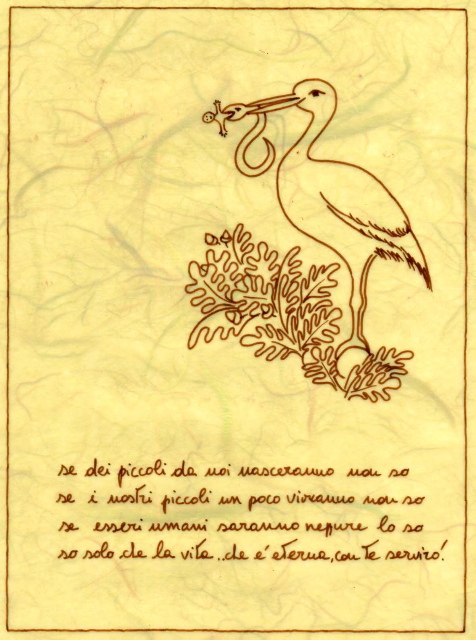 se dei piccoli da noi nasceranno non so
se i nostri piccoli un poco vivranno non so
se esseri umani saranno neppure lo so
so solo che la vita..che e' eterna, con te servirò!